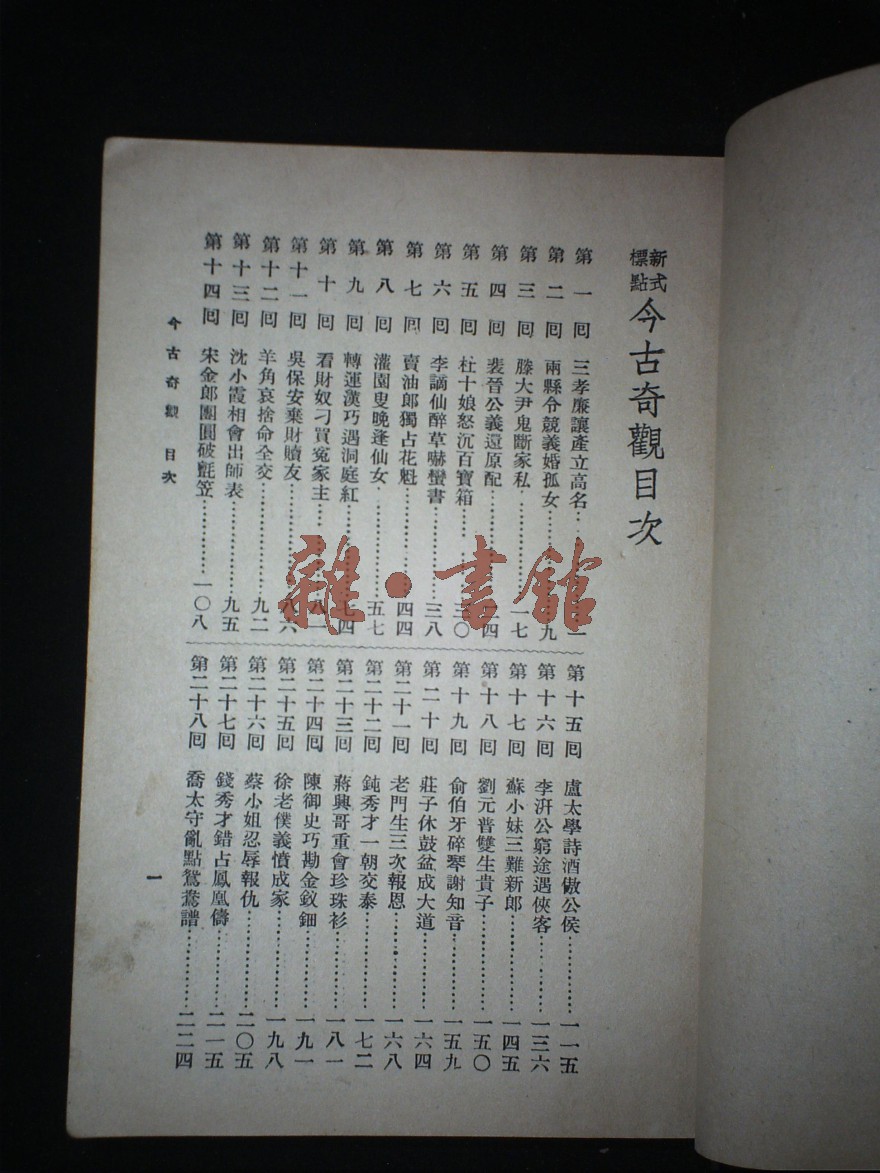 新式標點 今古奇觀目次
第一回 三孝廉讓產立高名 一
第二回 兩縣令競義婚孤女 九
第三回 滕大尹鬼斷家私 一七
第四回 裴晉公義還原配 二四
第五回 杜十娘怒沉百寶箱 三〇
第六回 李謫仙醉草嚇蠻書 三八
第七回 賣油郎獨占花魁 四四
第八回 灌園叟晚逢仙女 五七
第九回 轉運漢巧遇洞庭紅 七四
第十回 看財奴刁買冤家主 八一
第十一回 吳保安棄財贖友 八六
第十二回 羊角哀捨命全交 九二
第十三回 沈小霞相會出師表 九五
第十四回 宋金郎團圓破氈笠 一〇八
第十五回 盧太學詩酒傲公侯 一一五
第十六回 李汧公窮途遇俠客 一三六
第十七回 蘇小妹三難新郎 一四五
第十八回 劉元普雙生貴子 一五〇
第十九回 俞伯牙碎琴謝知音 一五九
第二十回 莊子休鼓盆成大道 一六四
第二十一回 老門生三次報恩 一六八
第二十二回 鈍秀才一朝交泰 一七二
第二十三回 蔣興哥重會珍珠衫 一八一
第二十四回 陳御史巧勘金釵鈿 一九一
第二十五回 徐老僕義憤成家 一九八
第二十六回 蔡小姐忍辱報仇 二〇五
第二十七回 錢秀才錯占鳳凰儔 二一五
第二十八回 喬太守亂點鴛鴦譜 二二四
今古奇觀 目次
一
雜·書館